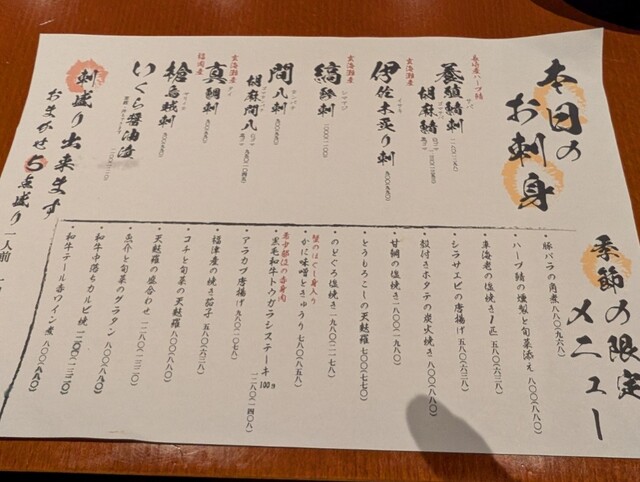 本日の
お刺身
長崎産ハーブ鯖
養殖鯖刺
胡麻鯖
伊佐木炙り刺
イサキ
玄海灘産
縞鯵刺
シマアジ
間八刺
カンパチ
胡麻間八
玄海灘産
真鯛刺
タイ
福岡産
槍烏賊刺
ヤリイカ
いくら醤油漬
刺盛り出来ます
おまかせ5点盛り
一人前
季節の限定
メニュー
・豚バラの角煮 八八〇(九六八)
・ハーブ鯖の燻製と旬菜添え 八〇〇(八八〇)
・車海老の塩焼き1匹 五八〇(六三八)
・シラサエビの唐揚げ 五八〇(六三八)
・殻付きホタテの炭火焼き 八〇〇(八八〇)
・甘鯛の塩焼き 一八〇〇(一九八〇)
・とうもろこしの天麩羅 七〇〇(七七〇)
・のどぐろ塩焼き 一九八〇(二一七八)
蟹のほぐし身入り
・かに味噌ときゅうり 七八〇(八五八)
・黒毛和牛トウガラシステーキ 100g 一二八〇(一四〇八)
・アラカブ唐揚 九八〇(一〇七八)
・福津産の焼き茄子 五八〇(六三八)
・コチと旬菜の天麩羅 八〇〇(八八〇)
・天麩羅の盛合わせ 一二八〇(一四〇八)
・魚介と旬菜のグラタン 八〇〇(八八〇)
・和牛中落ちカルビ焼 一二〇〇(一三二〇)
・和牛テール赤ワイン煮 八〇〇(八八〇)